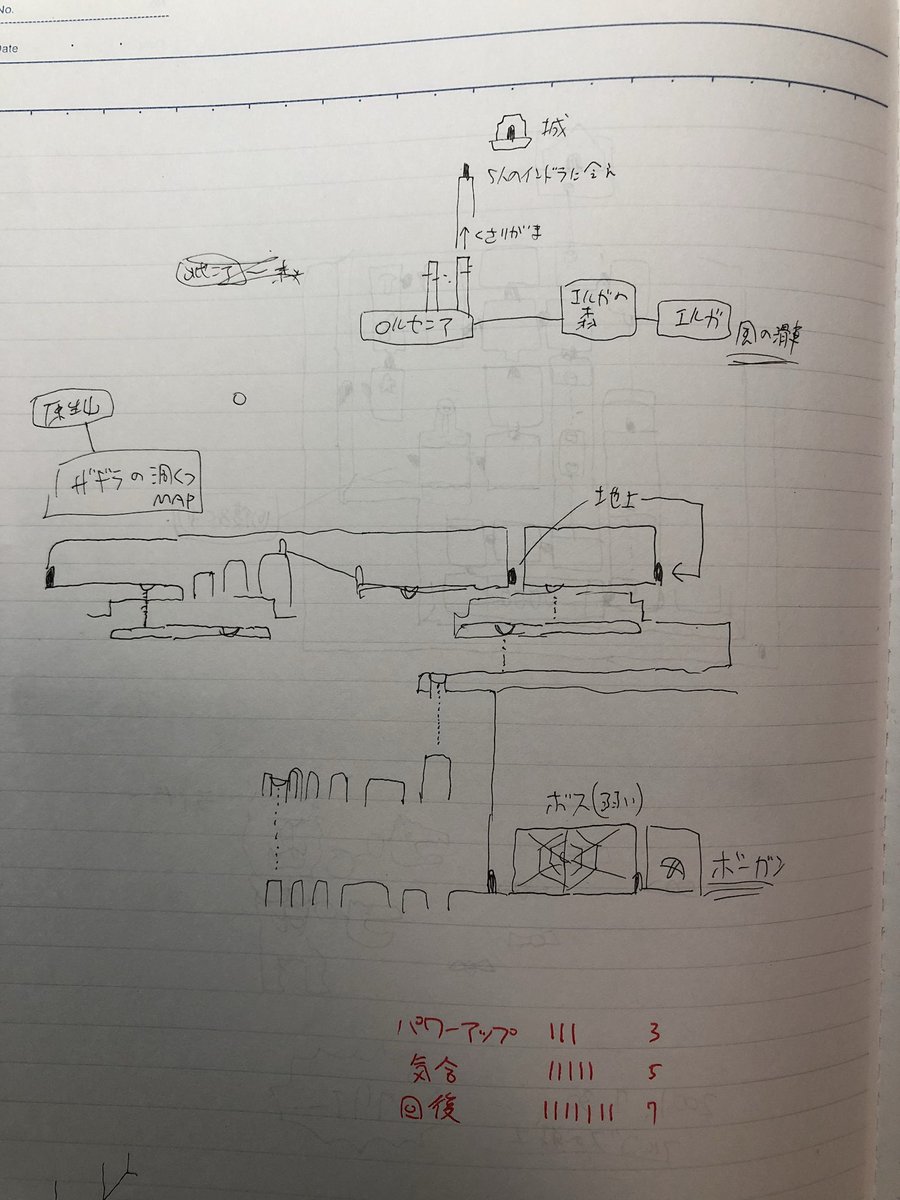 No.
Date
城
5人のインドラに会え
↑くさりがま
オルセニア
エルガの
森
エルガ
風の滑車
ガギラの洞くつ
MAP
地上
ボス(弱い)
ボーガン
パワーアップ 3
気合 5
回復 7